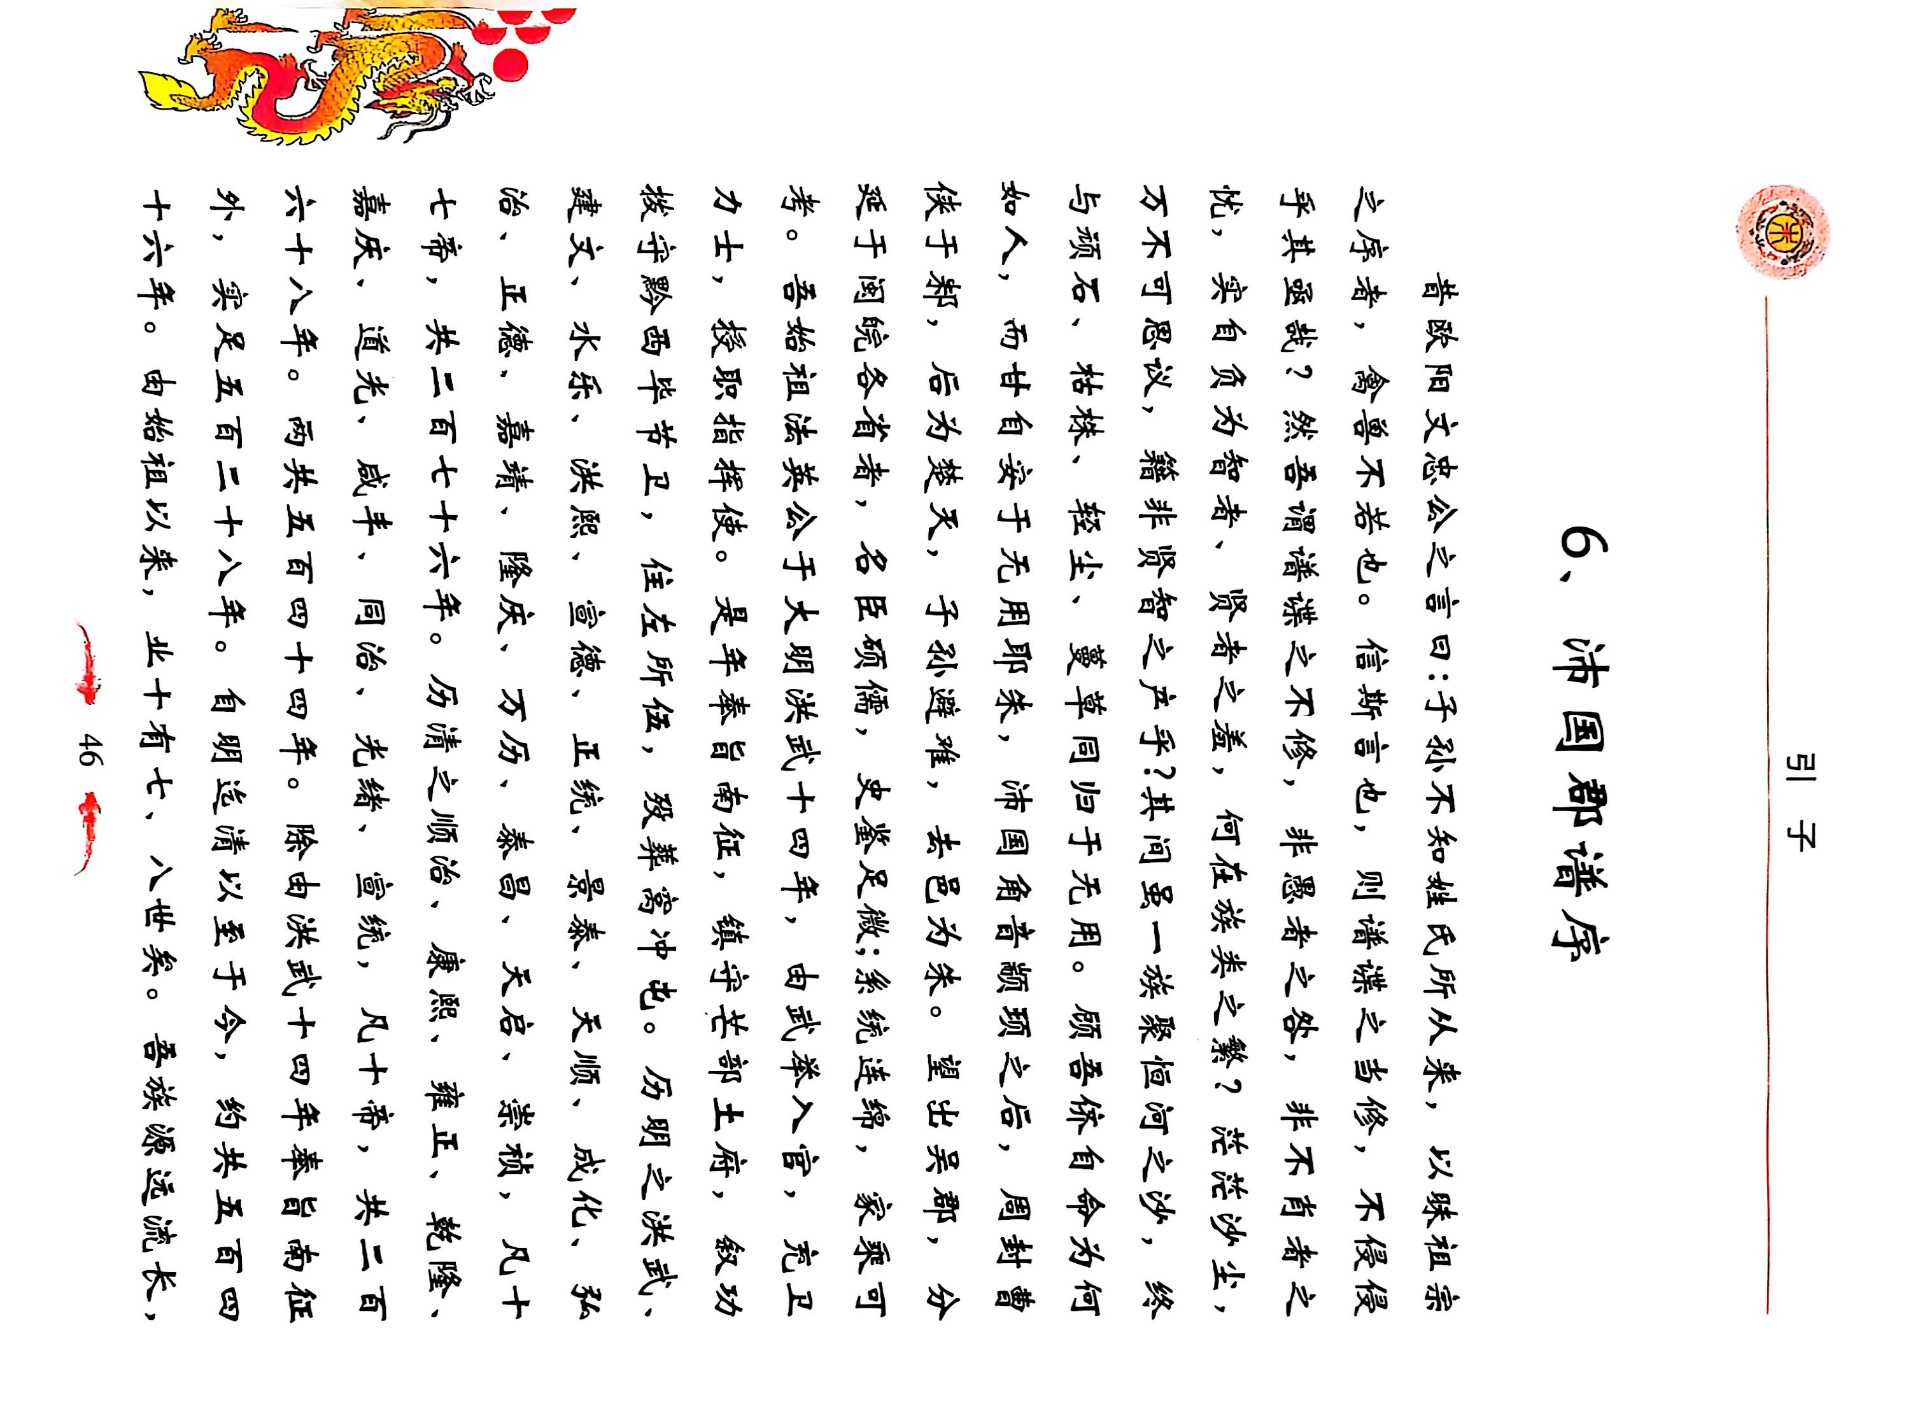 引子
6、沛国郡谱序
昔欧阳文忠公之言曰:子孙不知姓氏所从来，以昧祖宗
之序者，禽兽不若也。信斯言也，则谱谍之当修，不侵侵
乎其亟哉？然吾谓谱谍之不修，非愚者之咎，非不肖者之
忧，实自负为智者、贤者之羞，何在族类之繁？茫茫沙尘，
万不可思议，籍非贤智之产乎?其间虽一族聚恒河之沙，终
与顽石、枯株、轻尘、蔓草同归于无用。顾吾侪自命为何
如人，而甘自安于无用耶朱，沛国角音颛顼之后，周封曹
侠于邾，后为楚灭，子孙避难，去邑为朱。望出吴郡，分
延于闽皖各省者，名臣硕儒，史鉴足微;系统连绵，家乘可
考。吾始祖法英公于大明洪武十四年，由武举入官，充卫
力士，授职指挥使。是年奉旨南征，镇守芒部土府，叙功
拨守黔西毕节卫，住左所伍，殁葬窝冲屯。历明之洪武、
建文、水乐、洪熙、宣德、正统、景泰、天顺、成化、弘
治、正德、嘉靖、隆庆、万历、泰昌、天启、崇祯，凡十
七帝，共二百七十六年。历清之顺治、康熙、雍正、乾隆、
嘉庆、道光、咸丰、同治、光绪、宣统，凡十帝，共二百
六十八年。两共五百四十四年。除由洪武十四年奉旨南征
外，实足五百二十八年。自明迄清以至于今，约共五百四
十六年。由始祖以来，业十有七、八世矣。吾族源远流长，
46